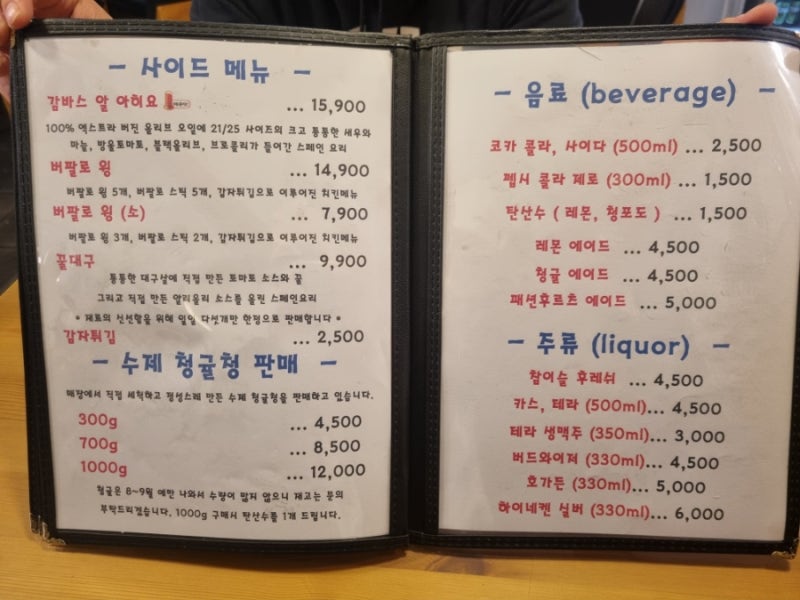 - 사이드 메뉴 -
감바스 알 아히요 ... 15,900
100% 엑스트라 버진 올리브 오일에 21/25 사이즈의 크고 통통한 새우와
마늘, 방울토마토, 블랙올리브, 브로콜리가 들어간 스페인 요리
버팔로 윙 ... 14,900
버팔로 윙 5개, 버팔로 스틱 5개, 감자튀김으로 이루어진 치킨메뉴
버팔로 윙 (소) ... 7,900
버팔로 윙 3개, 버팔로 스틱 2개, 감자튀김으로 이루어진 치킨메뉴
꿀대구 ... 9,900
통통한 대구살에 직접 만든 토마토 소스와 꿀
그리고 직접 만든 알리올리 소스를 올린 스페인요리
* 재료의 신선함을 위해 일일 다섯개만 한정으로 판매합니다 *
감자튀김 ... 2,500
- 수제 청귤청 판매 -
매장에서 직접 세척하고 정성스레 만든 수제 청귤청을 판매하고 있습니다.
300g ... 4,500
700g ... 8,500
1000g ... 12,000
청귤은 8~9월 에만 나와서 수량이 많지 않으니 재고는 문의
부탁드리겠습니다. 1000g 구매시 탄산수를 1개 드립니다.
- 음료 (beverage) -
코카 콜라, 사이다 (500ml) ... 2,500
펩시 콜라 제로 (300ml) ... 1,500
탄산수 ( 레몬, 청포도 ) ... 1,500
레몬 에이드 ... 4,500
청귤 에이드 ... 4,500
패션후르츠 에이드 ... 5,000
- 주류 (liquor) -
참이슬 후레쉬 ... 4,500
카스, 테라 (500ml)... 4,500
테라 생맥주 (350ml)... 3,000
버드와이저 (330ml)... 4,500
호가든 (330ml)... 5,000
하이네켄 실버 (330ml)... 6,000